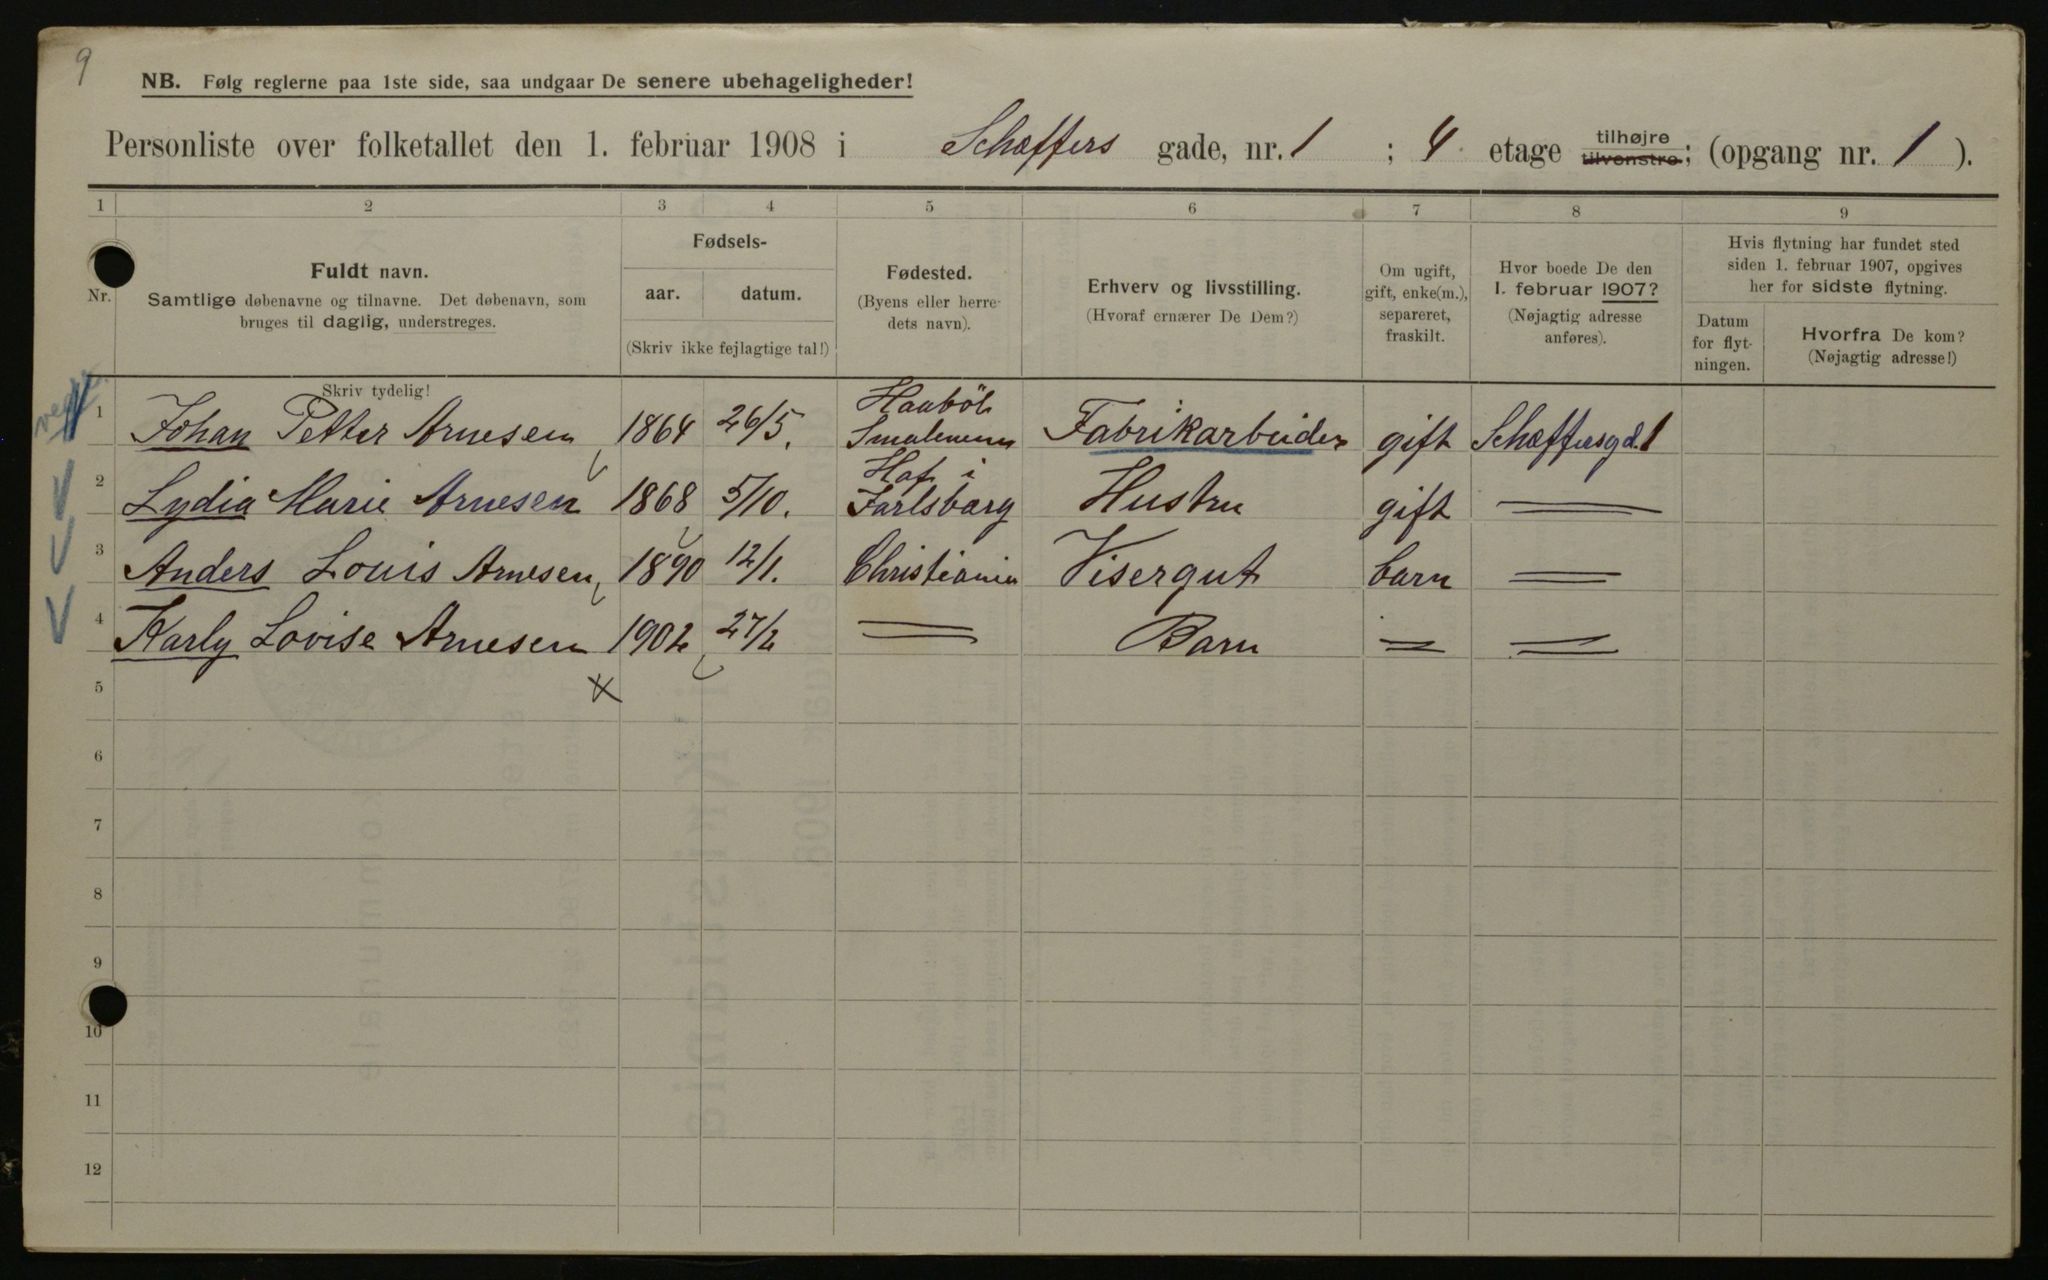 9
NB. Følg reglerne paa 1ste side, saa undgaar De senere ubehageligheder!
Personliste over folketallet den 1. februar 1908 i Schæffers gade, nr. 1 ; 4 etage tilhøjre tilvenstre; (opgang nr. 1 ).
1 2 3 4 5 6 7 8 9
Nr.
Fuldt navn.
Samtlige døbenavne og tilnavne. Det døbenavn, som
bruges til daglig, understreges.
Skriv tydelig!
Fødsels-
aar. datum.
(Skriv ikke fejlagtige tal!)
Fødested.
(Byens eller herre-
dets navn).
Erhverv og livsstilling.
(Hvoraf ernærer De Dem?)
Om ugift,
gift, enke(m.),
separeret,
fraskilt.
Hvor boede De den
1. februar 1907?
(Nøjagtig adresse
anføres).
Hvis flytning har fundet sted
siden 1. februar 1907, opgives
her for sidste flytning.
Datum
for flyt-
ningen.
Hvorfra De kom?
(Nøjagtig adresse!)
1 Johan Petter Arnesen 1864 26/5. Haaböl Smalenene Fabrikarbeider gift Schæffersgd. 1
2 Lydia Marie Arnesen 1868 5/10. Hof i Jarlsbarg Hustru gift
3 Anders Louis Arnesen 1890 12/1. Christiania Visergut barn
4 Karly Lovise Arnesen 1902 27/2 Barn
5
6
7
8
9
10
11
12